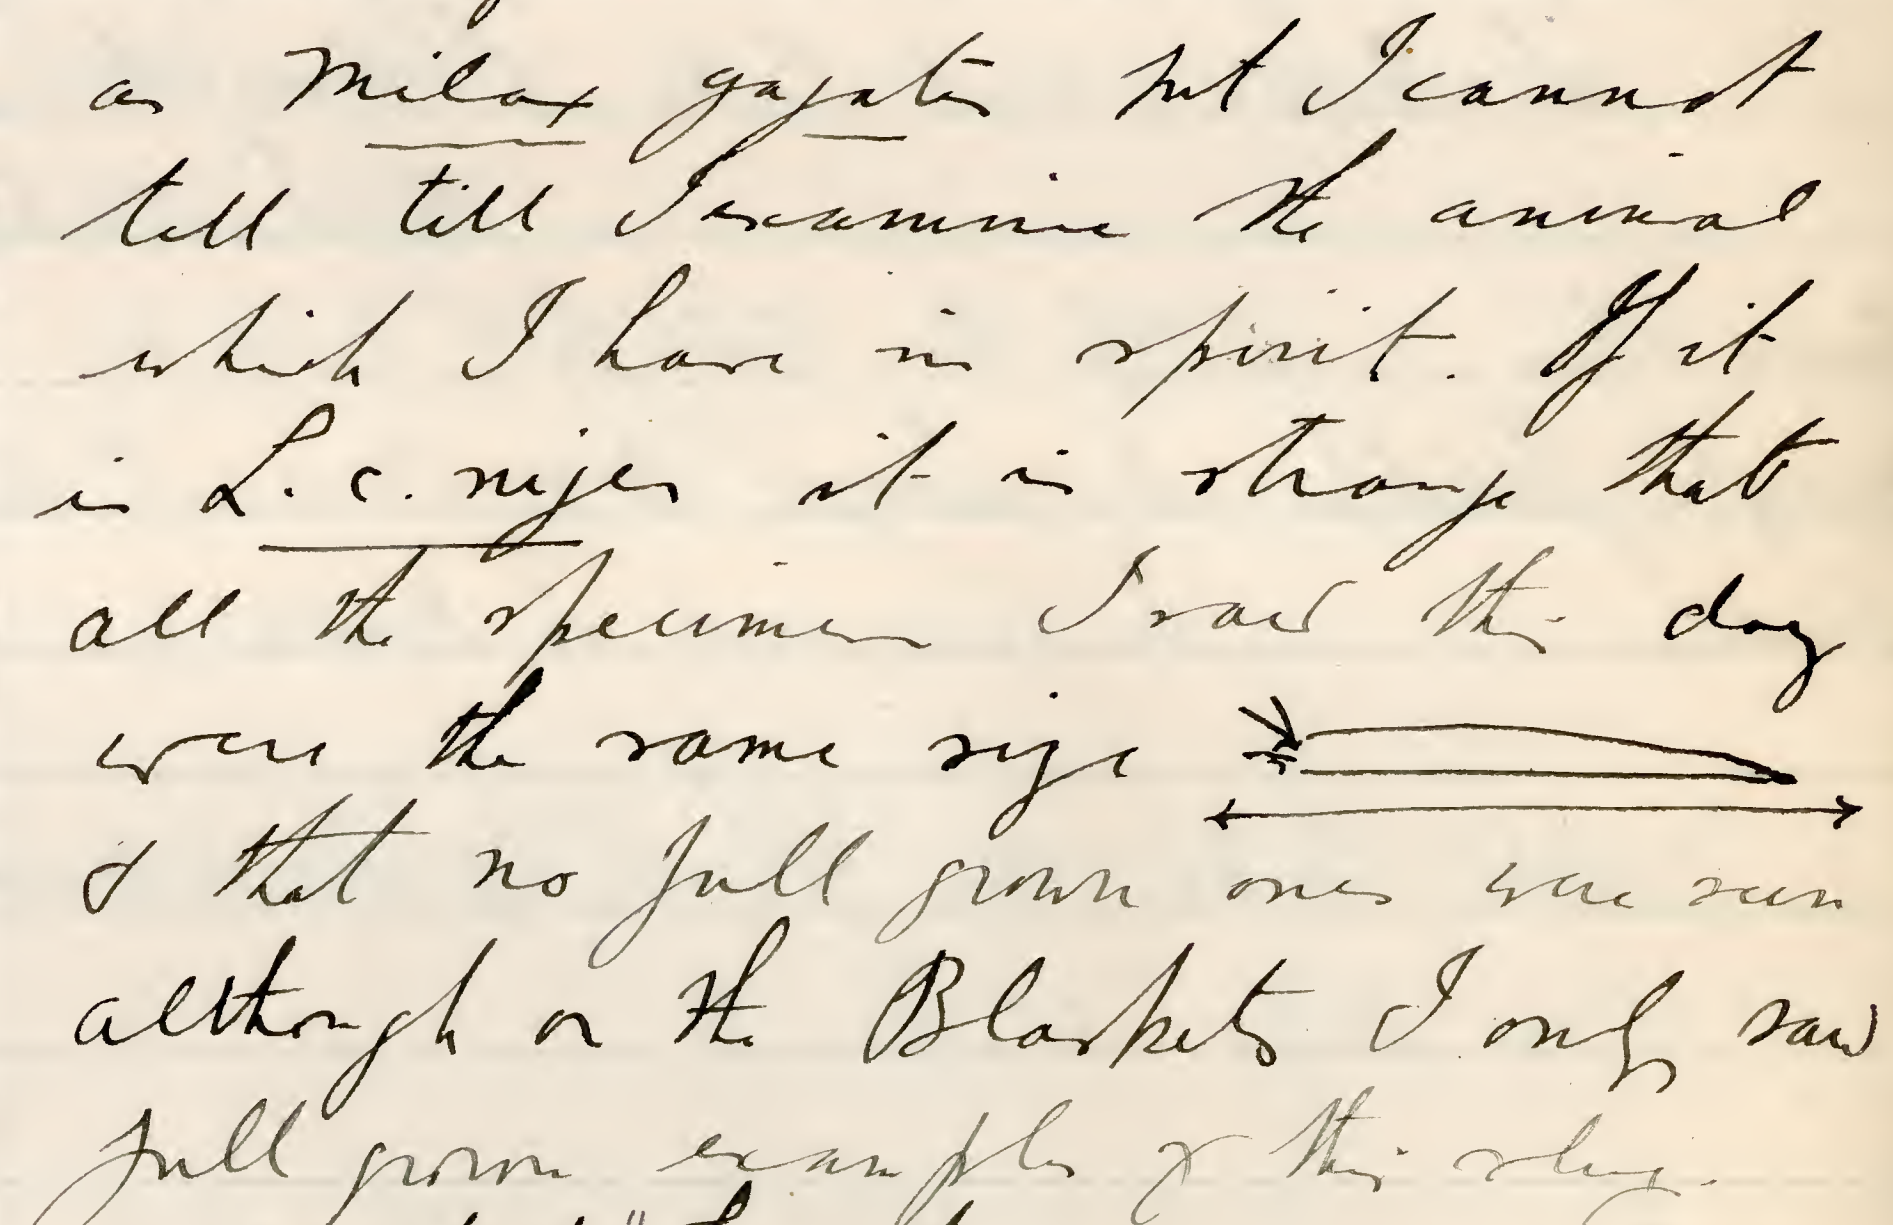 as Milax gagates but I cannot
tell till I examine the animal
which I have in spirit. If it
is L. c. niger it is strange that
all the specimens I saw this day
were the same size
& that no full grown ones were seen
although on the Blaskets I only saw
full grown examples of this slug.